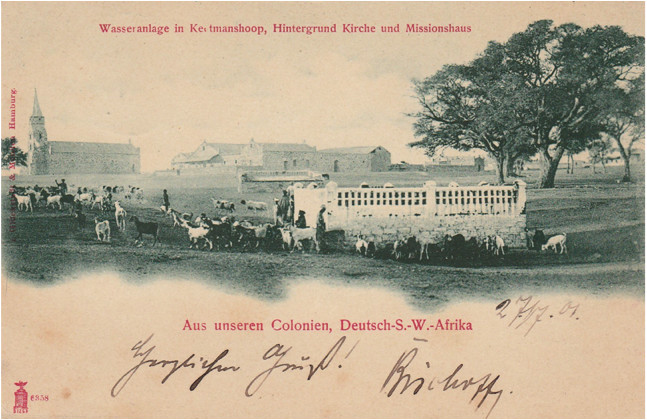 Wasseranlage in Keetmanshoop, Hintergrund Kirche und Missionshaus
Hamburg.
Aus unseren Colonien, Deutsch-S.-W.-Afrika
27/7. 01.
Herzlichen Gruß! Bischoff.
6358